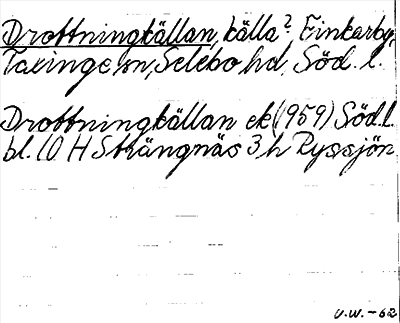 Drottningkällan, källa? Finkarby,
Taxinge sn, Selebo hd, Söd. l.
Drottningkällan ek (1959) Söd. l.
bl. 10 H Strängnäs 3 h Ryssjön
V.W. -62